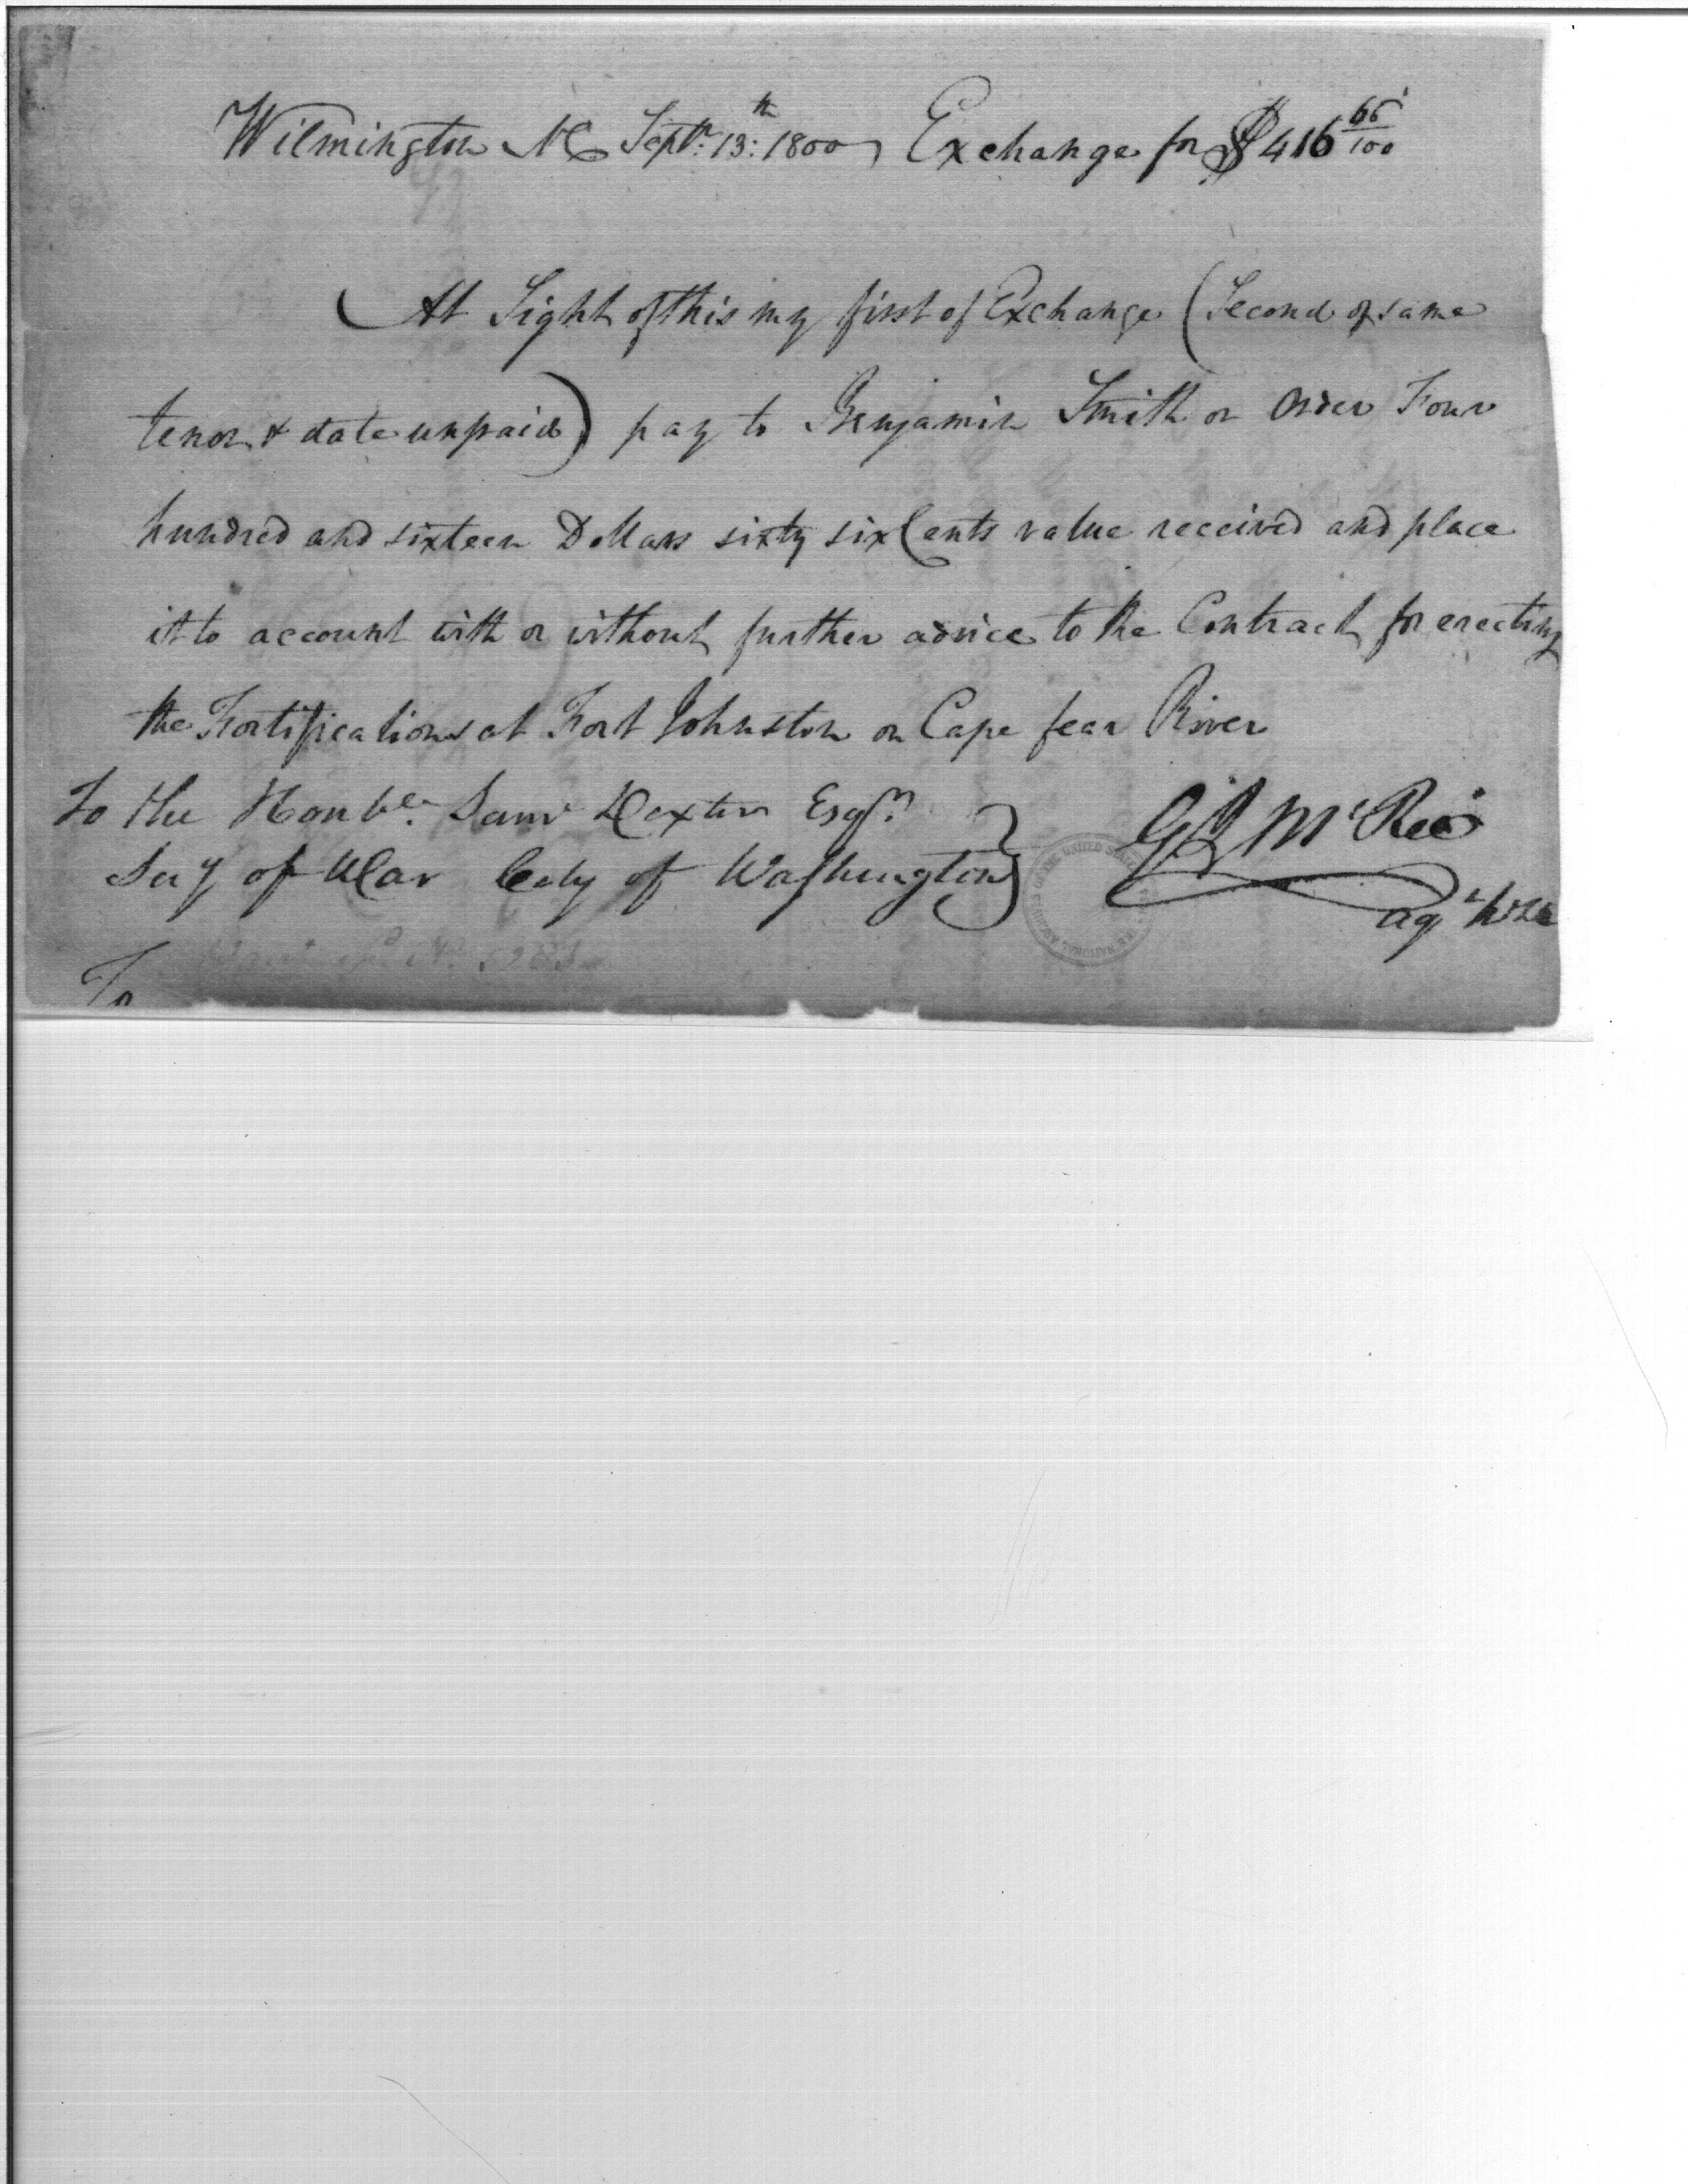 Wilmington NC Septr. 13:th 1800 Exchange for $416 66/100
At Sight of this my first of Exchange (Second of same
tenor & date unpaid) pay to Benjamin Smith or Order Four
hundred and sixteen Dollars sixty six Cents value received and place
it to account with or without further advice to the Contract for erecting
the Fortifications at Fort Johnston on Cape fear River
To the Honble. Saml Dexter Esqr.
Secy of War City of Washington
G J McRee
Agt
To